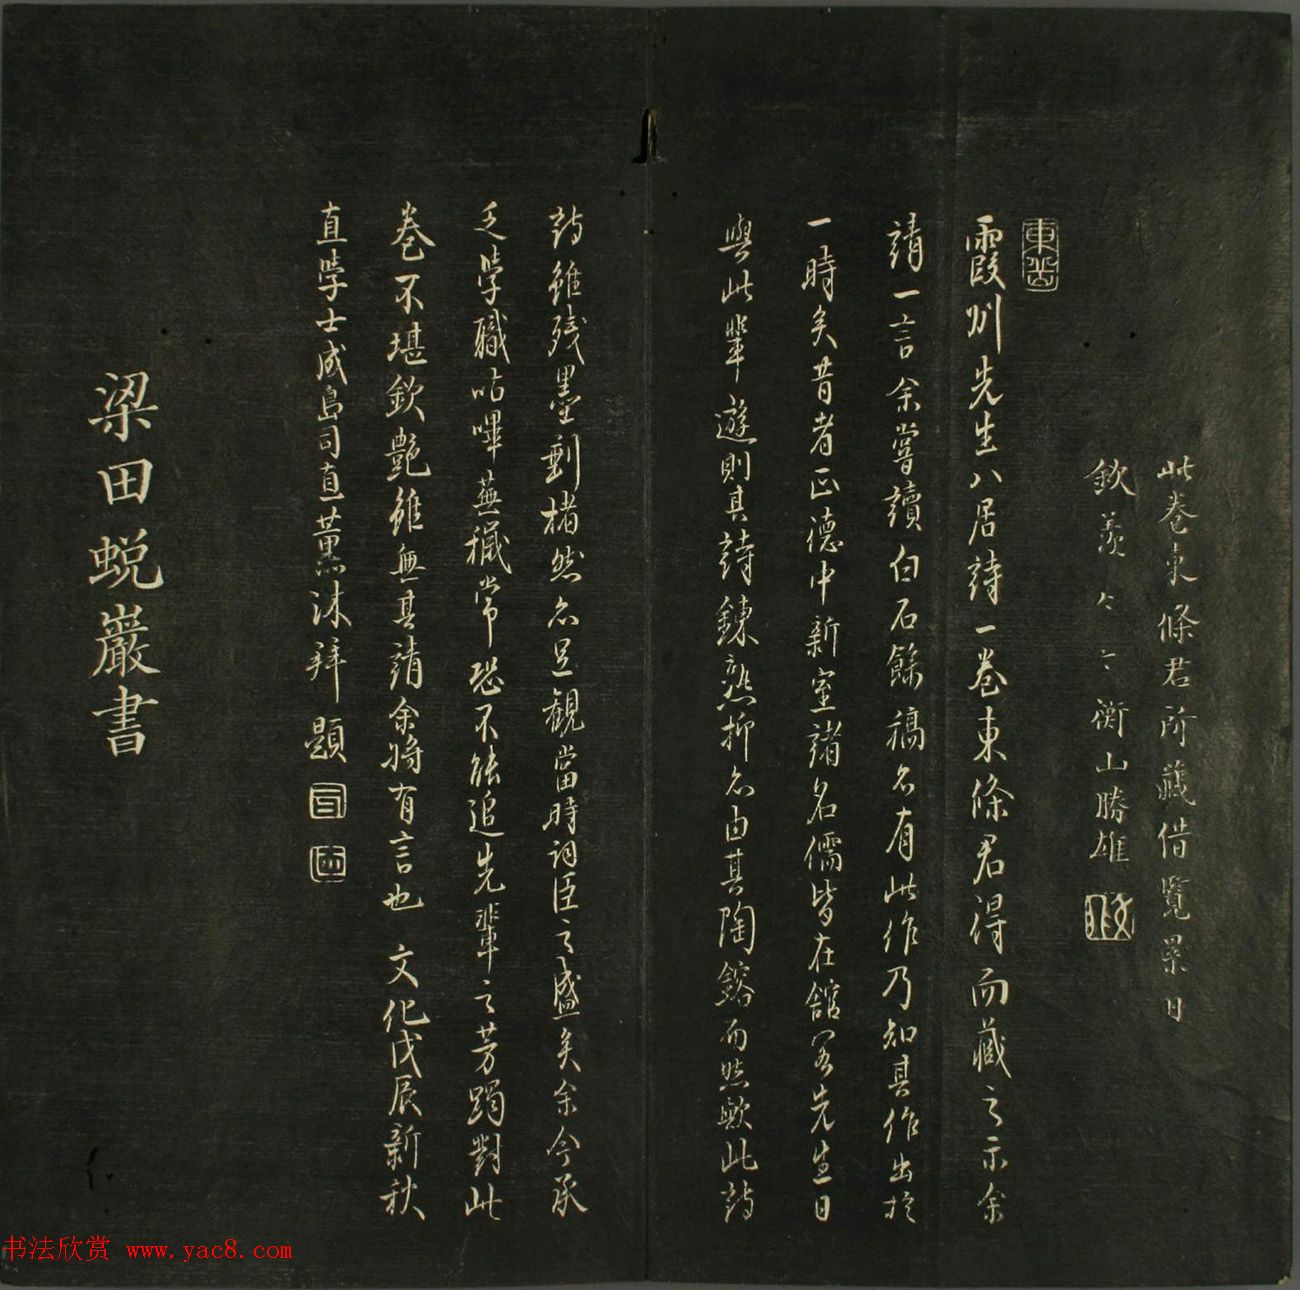 此卷東條君所藏借覽累日
欽羨々々衡山勝雄
霞州先生八居詩一卷東條君得而藏之示余
請一言余嘗讀白石餘稿亦有此作乃知其作出於
一時矣昔者正德中新室諸名儒皆在館閣先生日
與此輩遊則其詩鍊熟抑亦由其陶鎔而然歟此詩
詩雖殘墨剩楮然亦足觀當時詞臣之盛矣余今承
乏學職呫嗶蕪穢常恐不能追先輩之芳躅對此
卷不堪欽艷雖無其請余將有言也 文化戊辰新秋
直學士成島司直薰沐拜題
梁田蛻巖書
书法欣赏 www.yac8.com